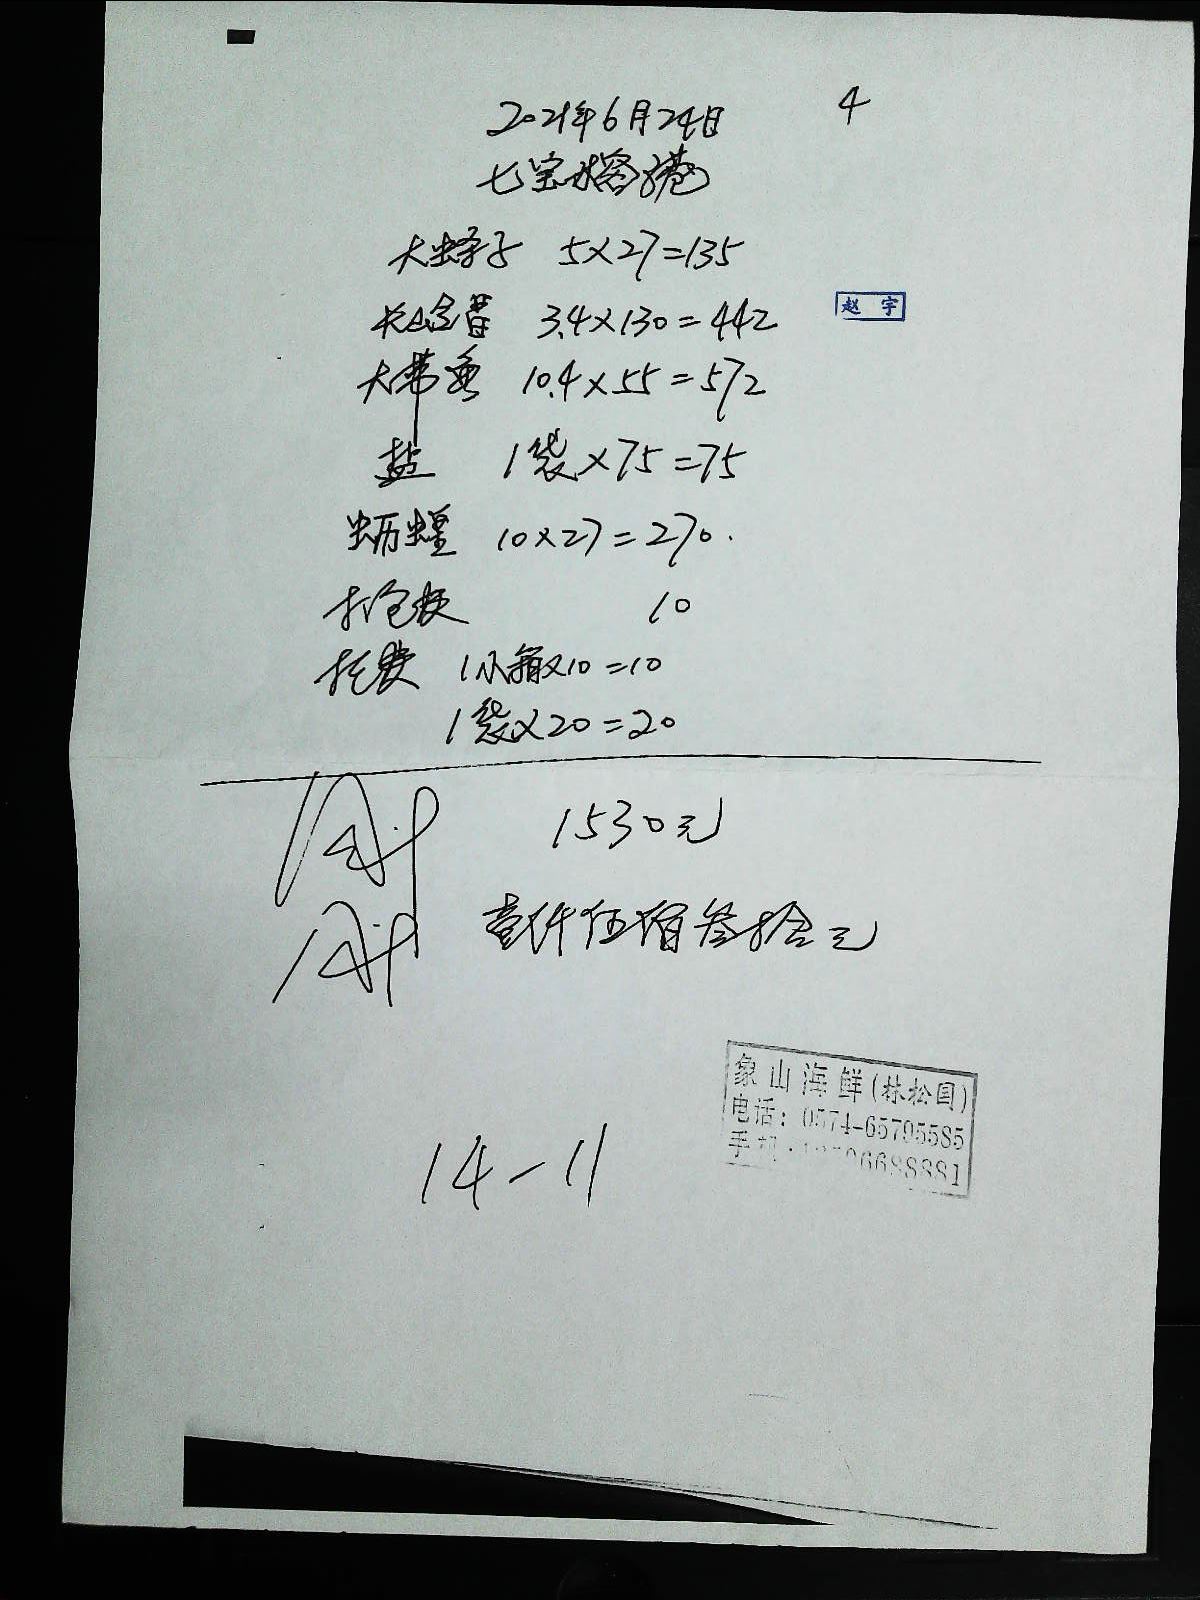 2021年6月24日 4
七宝水榕港
大蛏子 5×27=135
赵宇
3.4×130=442
大带鱼 10.4×55=572
盐 1袋×75=75
蛎蝗 10×27=270.
打包费 10
托费 1小箱×10=10
1袋×20=20
1530元
壹仟伍佰叁拾元
象山海鲜(林松国)
电话: 0574-65795585
14-11
手机